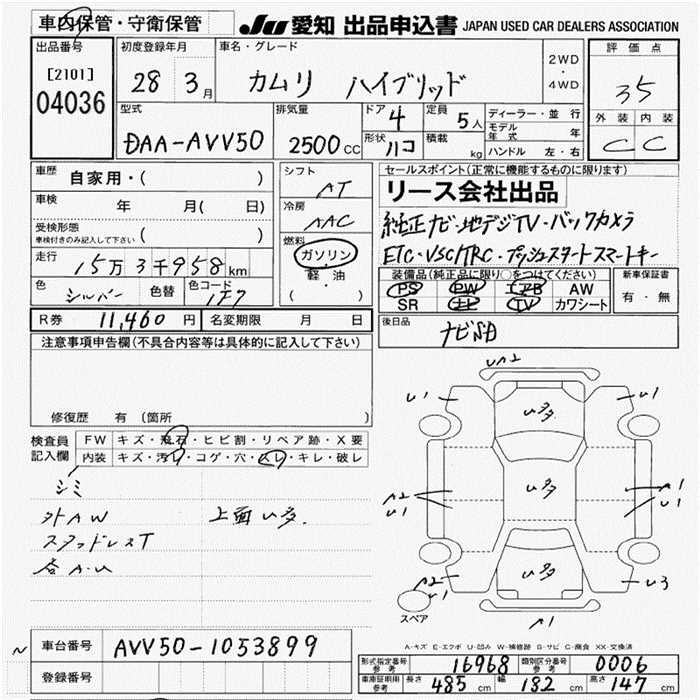 車内保管・守衛保管
JU 愛知 出品申込書 JAPAN USED CAR DEALERS ASSOCIATION
出品番号
[2101]
04036
初度登録年月
28年 3月
車名・グレード
カムリ ハイブリッド
2WD
・
4WD
評価点
3.5
外装 内装
C C
型式
DAA-AVV50
排気量
2500cc
ドア 4
形状 ハコ
定員 5人
積載 kg
ディーラー・並行
モデル年式 年
ハンドル 左・右
車歴 自家用・( )
車検 年 月( 日)
受検形態
車検付きのみ記入して下さい ( )
走行 15万3千958km
色 シルバー 色替 色コード 1F7
シフト AT
冷房 AAC
燃料
ガソリン
軽油
( )
セールスポイント(正常に機能するものに限ります)
リース会社出品
純正ナビ・地デジTV・バックカメラ
ETC・VSC/TRC・プッシュスタートスマートキー
装備品(純正品に限り○をつけてください)
PS PW エアB AW
SR ナビ TV カワシート
新車保証書
有・無
R券 11,460円 名変期限 月 日
後日品
ナビSD
注意事項申告欄(不具合内容等は具体的に記入して下さい)
修復歴 有(箇所 )
検査員記入欄
FW キズ・飛石・ヒビ割・リペア跡・X要
内装 キズ・汚レ・コゲ・穴・スレ・キレ・破レ
シミ
外AW 上面い多.
スタッドレスT
各A.U
UA2
U1 U1
い多
A2 U1
い多
A1 U1
A2 U1
い多
U3
スペア
A1
A-キズ E-エクボ U-凹み W-補修跡 S-サビ C-腐食 XX-交換済
車台番号 AVV50-1053899
登録番号
型式指定番号 参考 16968 類別区分番号 参考 0006
車庫証明用 参考 長さ 485cm 幅 182cm 高さ 147cm